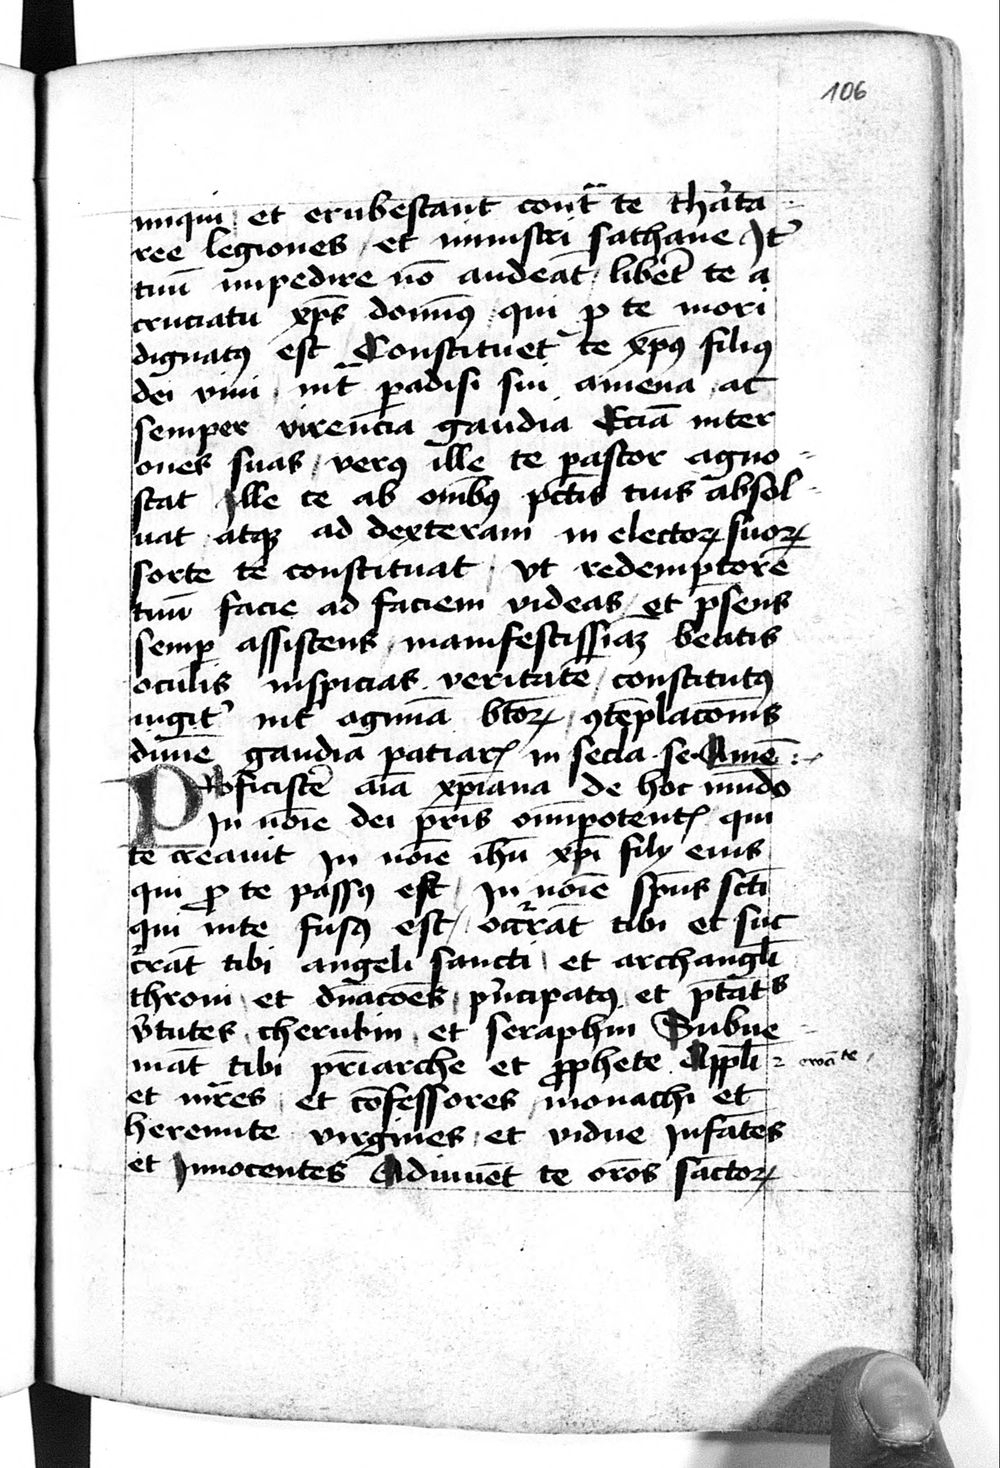 106
iniqui et erubescant contᷓ te tharta-
ree legiones et ministri sathane Itʼ
tuū impedire nō audeāt libeʳt te a
cruciatu xp̄s domin9 qui ꝓ te mori
dignat9 est Constituet te xp̄9 fili9
dei viui intᷓ padisi sui amena ac
semper virencia gaudia Eciā inter
oues suas ver9 ille te pastor agno-
scat Ille te ab om̄ib9 pctīs tuis absol-
uat atqꝫ ad dexteram in electoꝝ suoꝝ
sorte te constituat vt redemptorē
tuū facie ad faciem videas et p̄sens
semꝑ assistens manifestissīaꝫ beatis
oculis inspicias veritatē constitut9
igitʼ int̄ agmīa btōꝝ ꝯtēplacōnis
diuīe gaudia patiarꝭ in secla se Amē :
Proficiscēʼ aīa xp̄iana de hoc mūdo
In noīe dei p̄ris omīpotentꝭ qui
te creauit In noīe ihū xp̄i filij eius
qui ꝓ te pass9 est In noīe sp̄us sctī
qui in te fus9 est ocʳrāt tibi et suc
cʳrāt tibi angeli sancti et archangłi
throni et dn̄acōes pʼncipat9 et p̄tātˢ
vʼtutes cherubin et seraphin Subue-
niāt tibi pr̄iarche et ꝓphete Appłi
eroāte
et mr̄es et cōfessores monachi et
heremite virgines et vidue Infātes
et Innocentes Adiuuēt te orōs sāctoꝝ